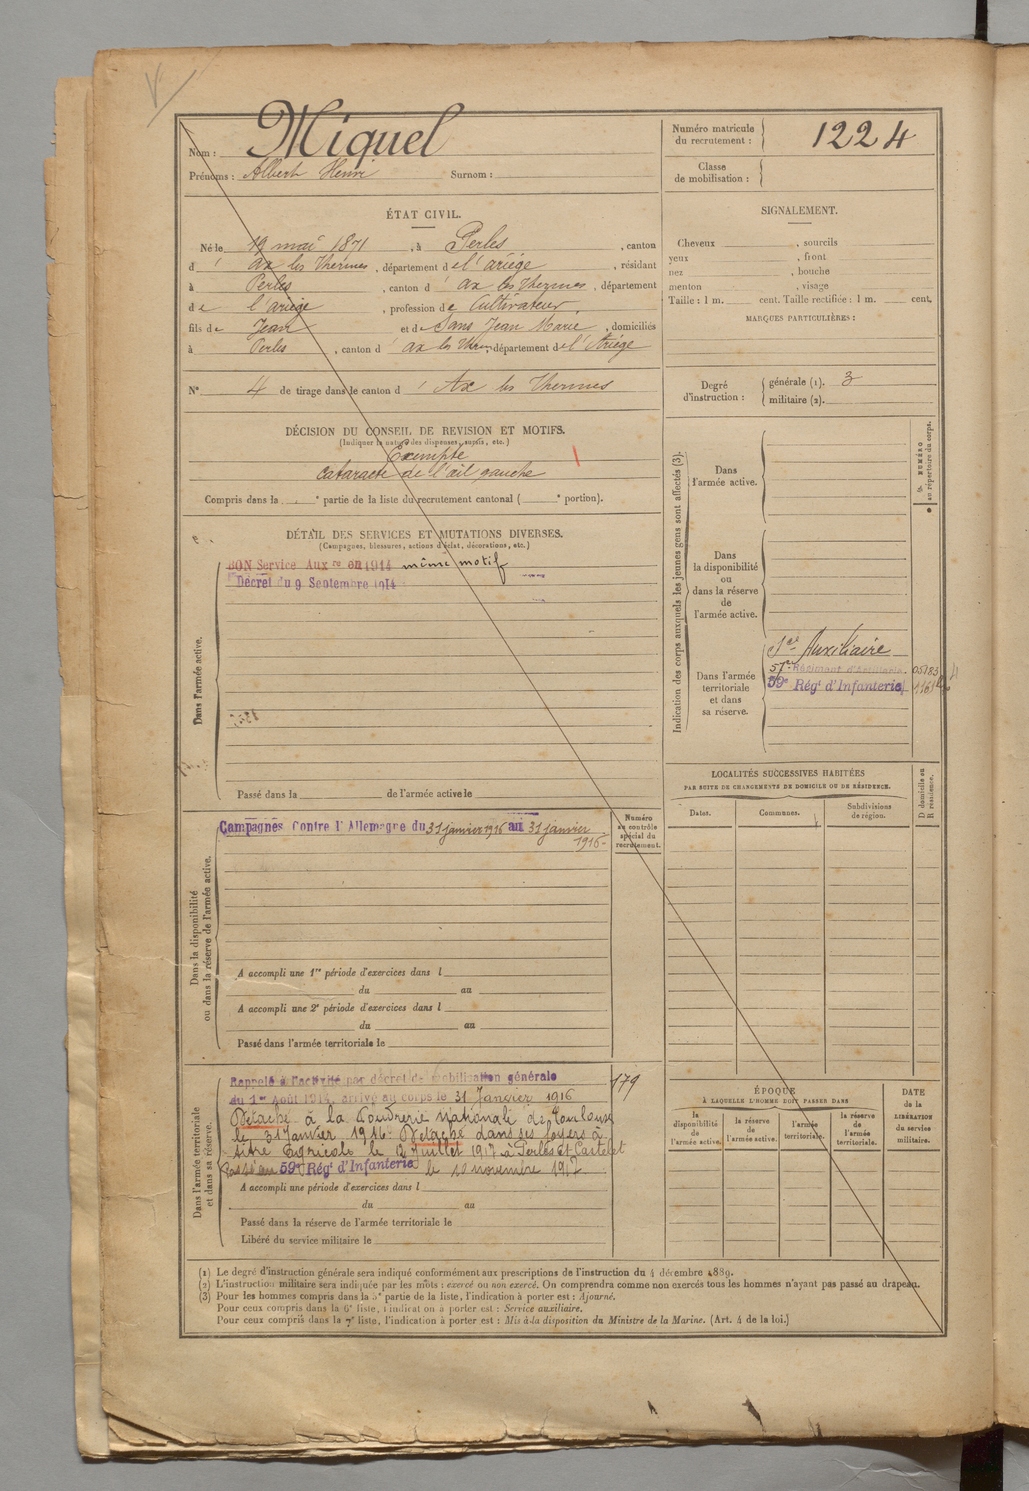 Nom : Miquel
Prénoms : Albert Henri Surnom :
Numéro matricule du recrutement : 1224
Classe de mobilisation :
ÉTAT CIVIL.
Né le 19 mai 1871, à Perles, canton
d' ax les Thermes, département de l'ariége, résidant
à Perles, canton d' ax les Thermes, département
de l'ariége, profession de Cultivateur,
fils de Jean et de Sans Jean Marie, domiciliés
à Perles, canton d' ax les Thermes, département de l'Ariége
N° 4 de tirage dans le canton d' Ax les Thermes
SIGNALEMENT.
Cheveux , sourcils
yeux , front
nez , bouche
menton , visage
Taille : 1 m. cent. Taille rectifiée : 1 m. cent.
MARQUES PARTICULIÈRES :
Degré d'instruction : générale (1). 3
militaire (2).
DÉCISION DU CONSEIL DE REVISION ET MOTIFS.
(Indiquer la nature des dispenses, sursis, etc.)
Exempté
cataracte de l'œil gauche
Compris dans la e partie de la liste du recrutement cantonal ( e portion).
DÉTAIL DES SERVICES ET MUTATIONS DIVERSES.
(Campagnes, blessures, actions d'éclat, décorations, etc.)
Dans l'armée active.
BON Service Aux re en 1914 même motif
Décret du 9 Septembre 1914
Passé dans la de l'armée active le
Indication des corps auxquels les jeunes gens sont affectés (3).
NUMÉRO au répertoire du corps.
Dans l'armée active.
Dans la disponibilité ou dans la réserve de l'armée active.
Dans l'armée territoriale et dans sa réserve.
Sce Auxiliaire
57e Régiment d'Artillerie 05183
59e Régt d'Infanterie
LOCALITÉS SUCCESSIVES HABITÉES
PAR SUITE DE CHANGEMENTS DE DOMICILE OU DE RÉSIDENCE.
Dates.
Communes.
Subdivisions de région.
D domicile ou R résidence.
Dans la disponibilité ou dans la réserve de l'armée active.
Campagnes Contre l'Allemagne du 31 janvier 1916 au 31 janvier
1916-
Numéro au contrôle spécial du recrutement.
A accompli une 1re période d'exercices dans l
du au
A accompli une 2e période d'exercices dans l
du au
Passé dans l'armée territoriale le
Dans l'armée territoriale et dans sa réserve.
Rappelé à l'activité par décret de mobilisation générale 179
du 1er Août 1914, arrivé au corps le 31 Janvier 1916
Détaché à la Poudrerie Nationale de Toulouse
le 31 Janvier 1916. Détaché dans ses foyers à
titre Agricole le 12 Juillet 1917 à Perles et Castelet
Passé au 59e Régt d'Infanterie le 10 novembre 1917
A accompli une période d'exercices dans l
du au
Passé dans la réserve de l'armée territoriale le
Libéré du service militaire le
ÉPOQUE
À LAQUELLE L'HOMME DOIT PASSER DANS
la disponibilité de l'armée active.
la réserve de l'armée active.
l'armée territoriale.
la réserve de l'armée territoriale.
DATE de la LIBÉRATION du service militaire.
(1) Le degré d'instruction générale sera indiqué conformément aux prescriptions de l'instruction du 4 décembre 1889.
(2) L'instruction militaire sera indiquée par les mots : exercé ou non exercé. On comprendra comme non exercés tous les hommes n'ayant pas passé au drapeau.
(3) Pour les hommes compris dans la 5e partie de la liste, l'indication à porter est : Ajourné.
Pour ceux compris dans la 6e liste, l'indication à porter est : Service auxiliaire.
Pour ceux compris dans la 7e liste, l'indication à porter est : Mis à la disposition du Ministre de la Marine. (Art. 4 de la loi.)